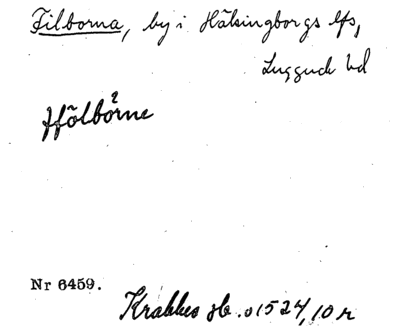 Filborna, by i Hälsingborgs lfs,
Luggude hd
ffölbörne
Nr 6459.
Krabbes jb. o 1524, 10 r